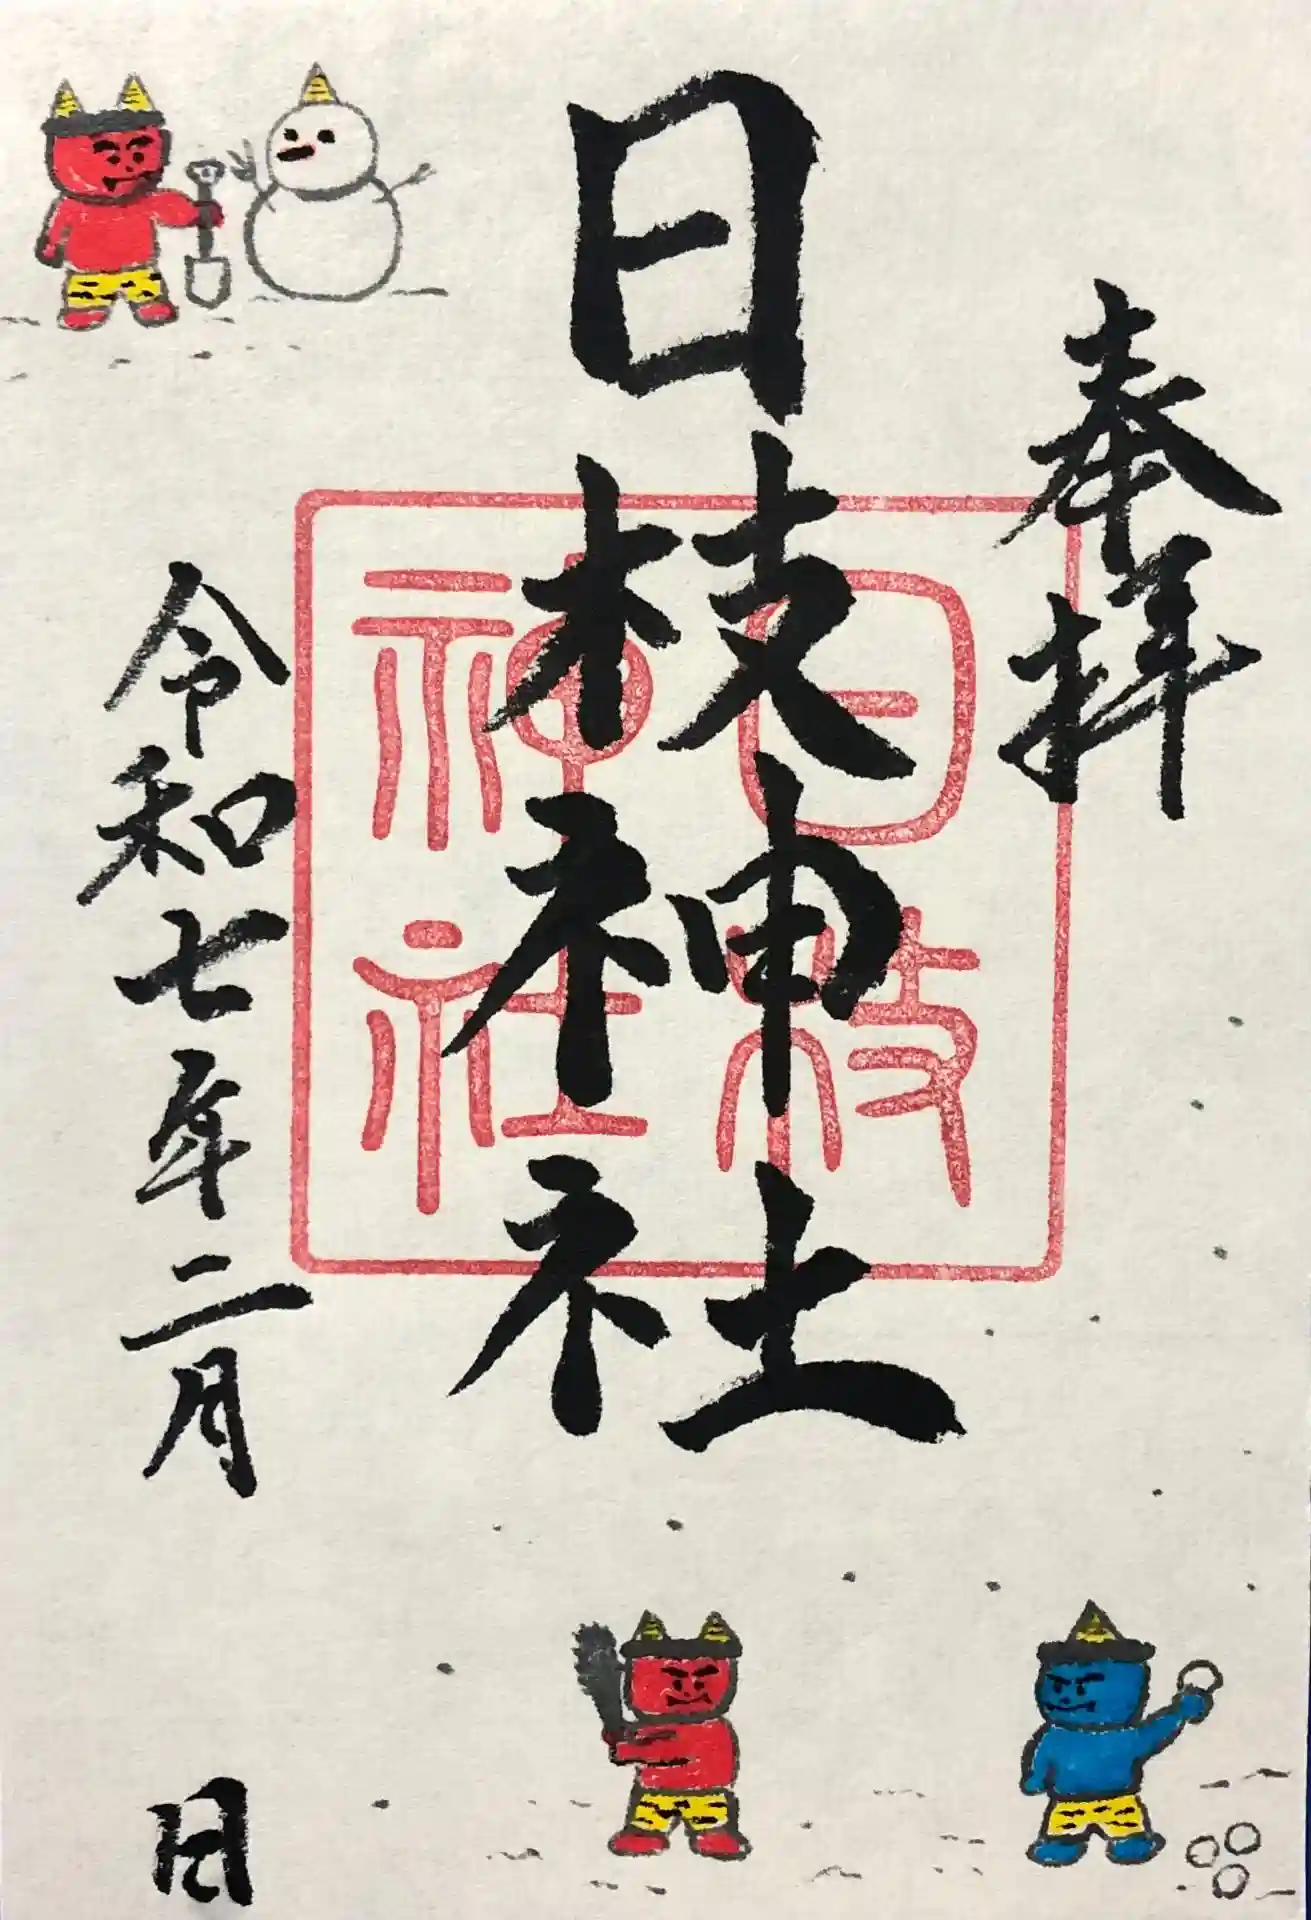 奉拝
日枝神社
日枝
神社
令和七年二月　日